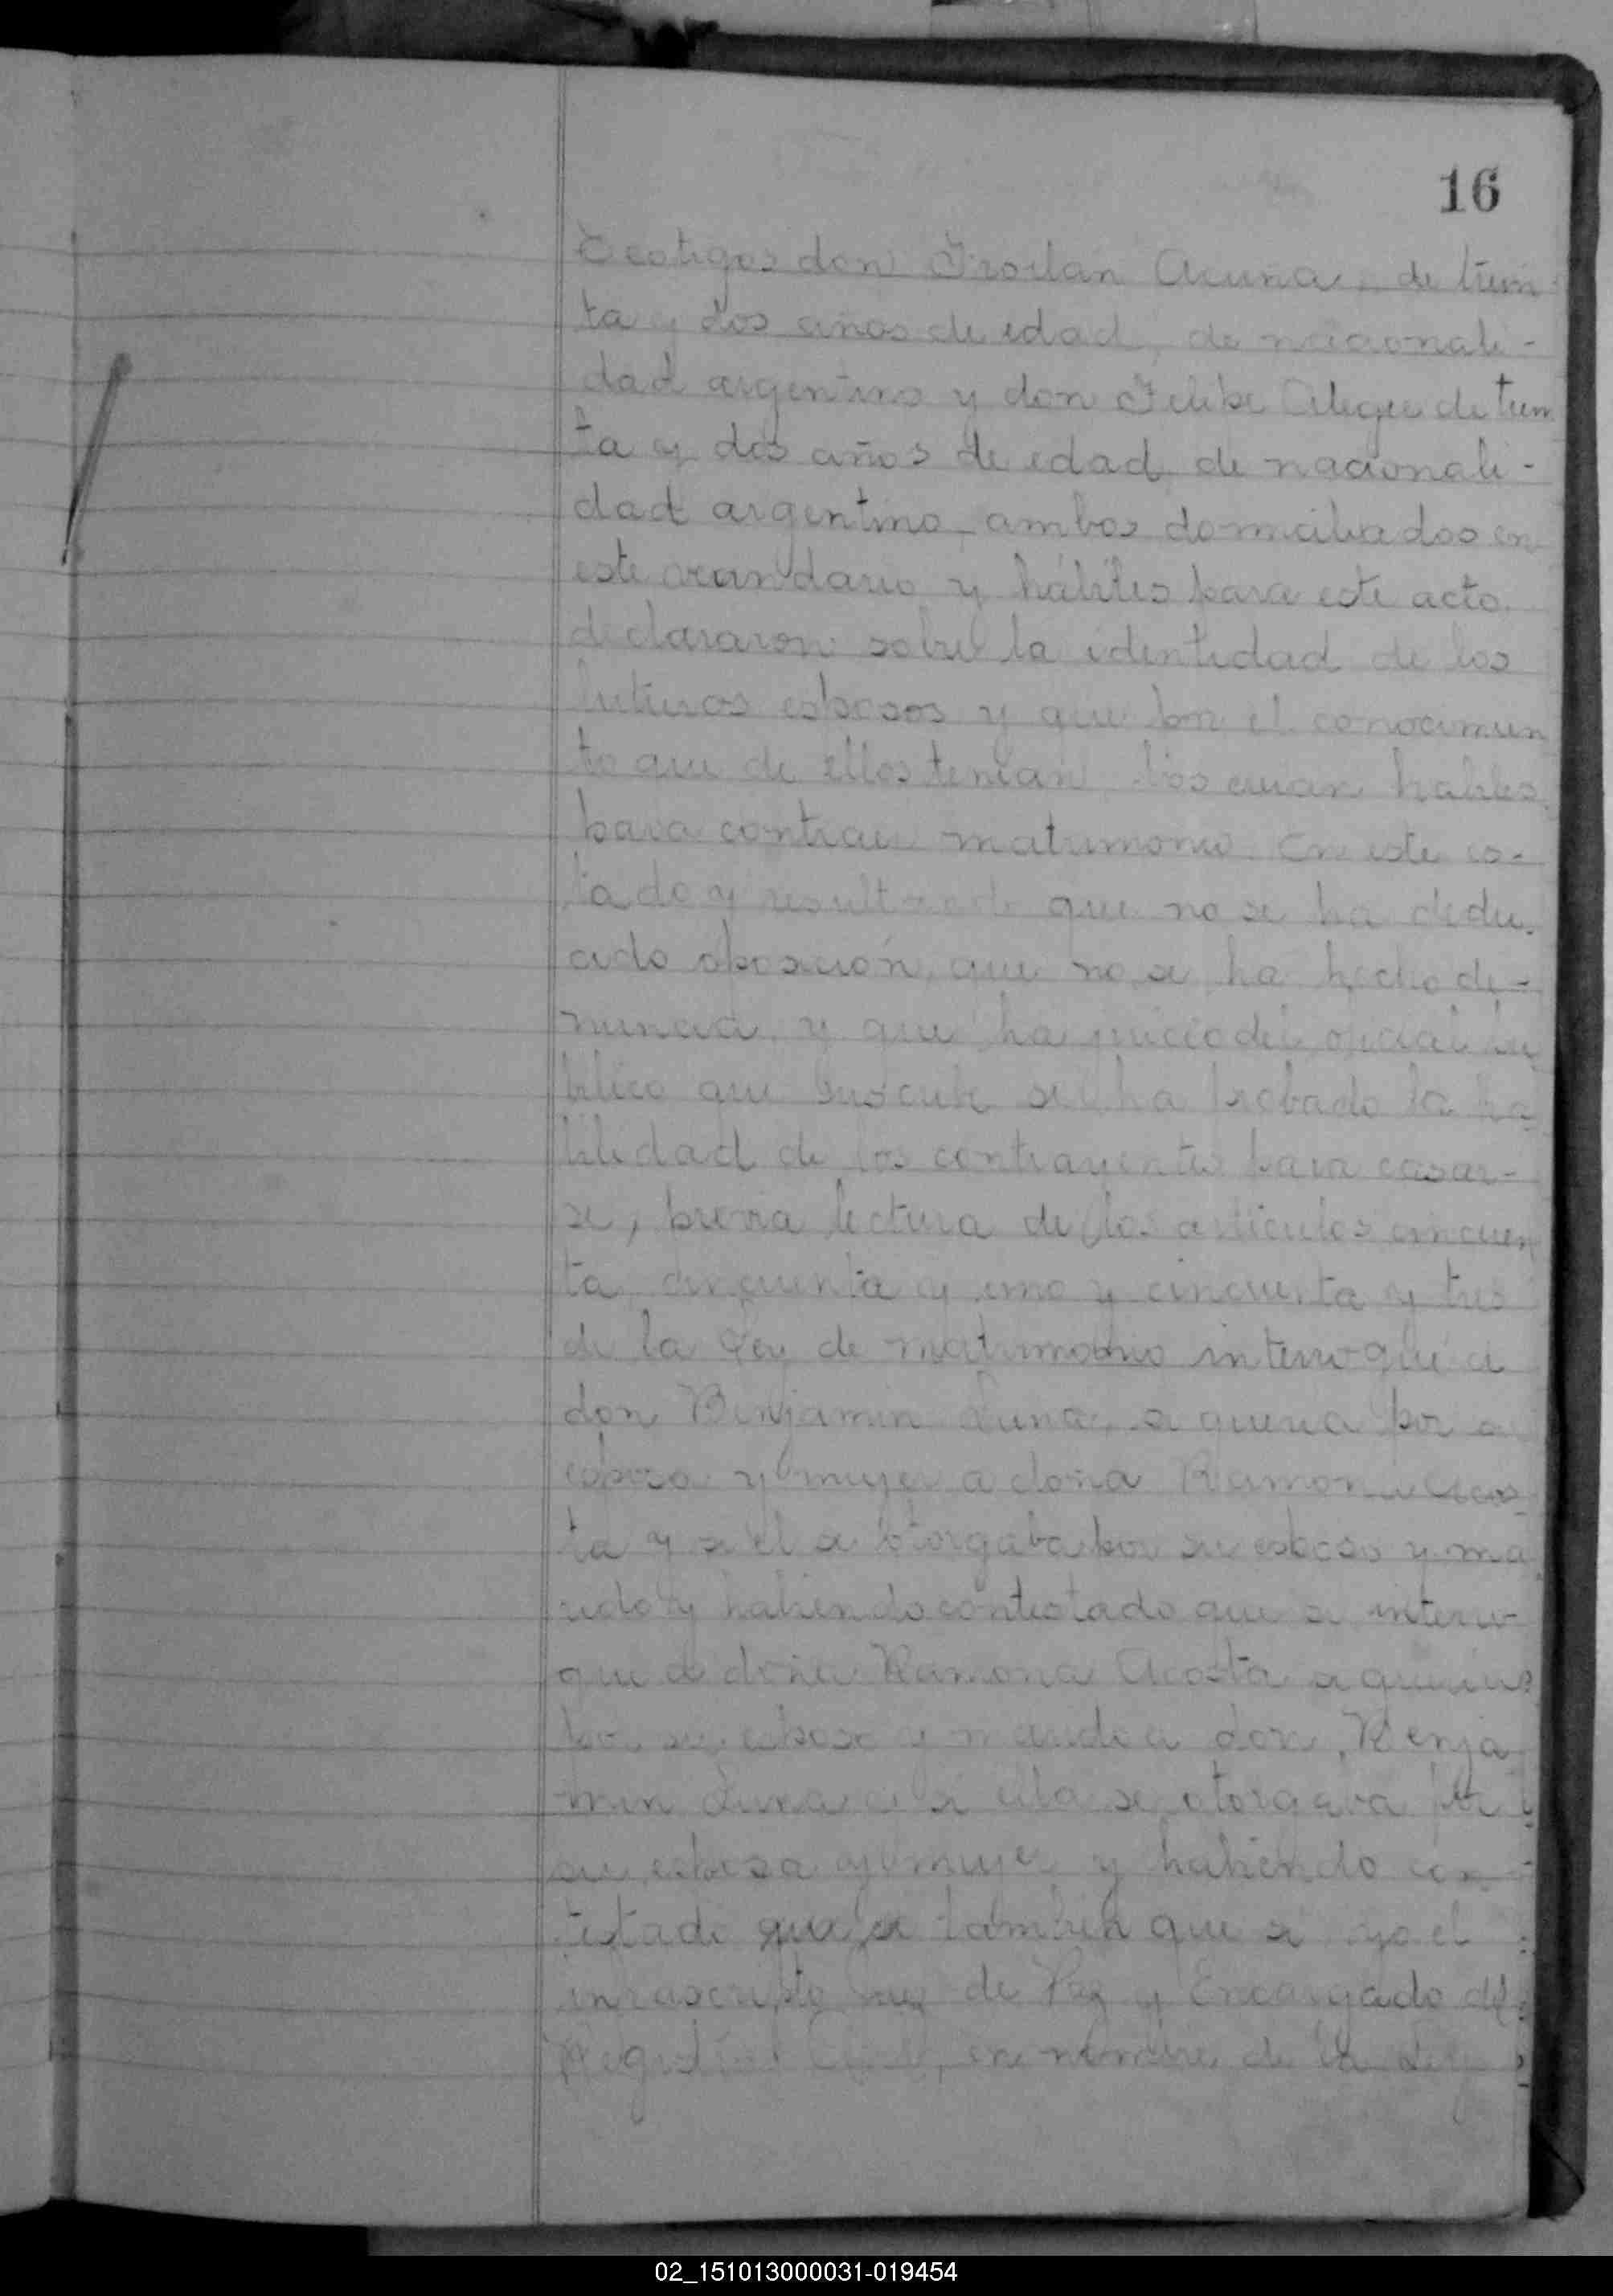 16
Testigos don Froilán Acuña, de trein
ta y dos años de edad, de nacionali-
dad argentino y don Felipe Alegre de trein
ta y dos años de edad de nacionali-
dad argentino, ambos domiciliados en
este vecindario y hábiles para este acto
declararon sobre la identidad de los
futuros esposos y que por el conocimien
to que de ellos tenian los creian habiles
para contraer matrimonio. En este es-
tado y resultando que no se ha dedu-
cido oposición, que no se ha hecho de-
nuncia y que ha juicio del oficial pu
blico que suscribe se ha probado la ha
bilidad de los contrayentes para casar-
se, previa lectura de los articulos cincuen
ta, cincuenta y uno y cincuenta y tres
de la Ley de matrimonio interrogué a
don Benjamin Luna, si queria por
esposa y mujer a doña Ramona Acos
ta y si el se otorgaba por su esposo y ma
rido y habiendo contestado que si interro-
gue a doña Ramona Acosta si queria
por su esposo y marido a don Benja
min Luna y si ella se otorgaba por
su esposa y mujer y habiendo con-
testado que si tambien que si yo el
infrascripto Juez de Paz y Encargado del
Registro Civil, en nombre de la Ley
02_151013000031-019454